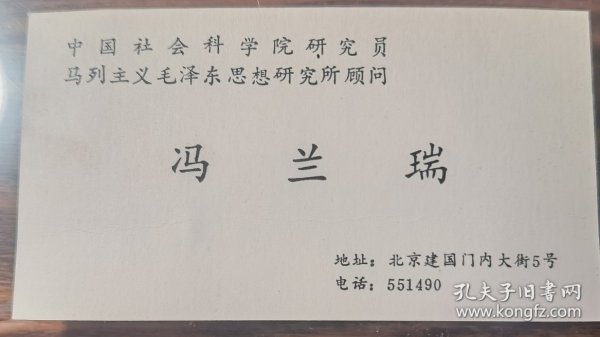 中国社会科学院研究员
马列主义毛泽东思想研究所顾问
冯兰瑞
地址：北京建国门内大街5号
电话：551490
孔夫子旧书网
www.kongfz.com